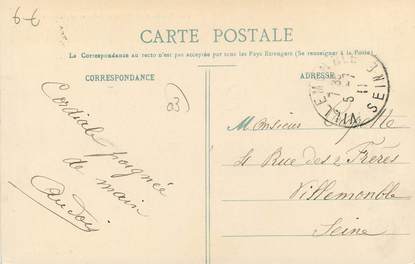 CARTE POSTALE
La Correspondance au recto n'est pas acceptée par tous les Pays Etrangers (Se renseigner à la Poste.)
CORRESPONDANCE
ADRESSE
03
Cordiale poignée
de main
Monsieur
4 Rue des 2 Frères
Villemomble
Seine
VILLEMOMBLE
SEINE